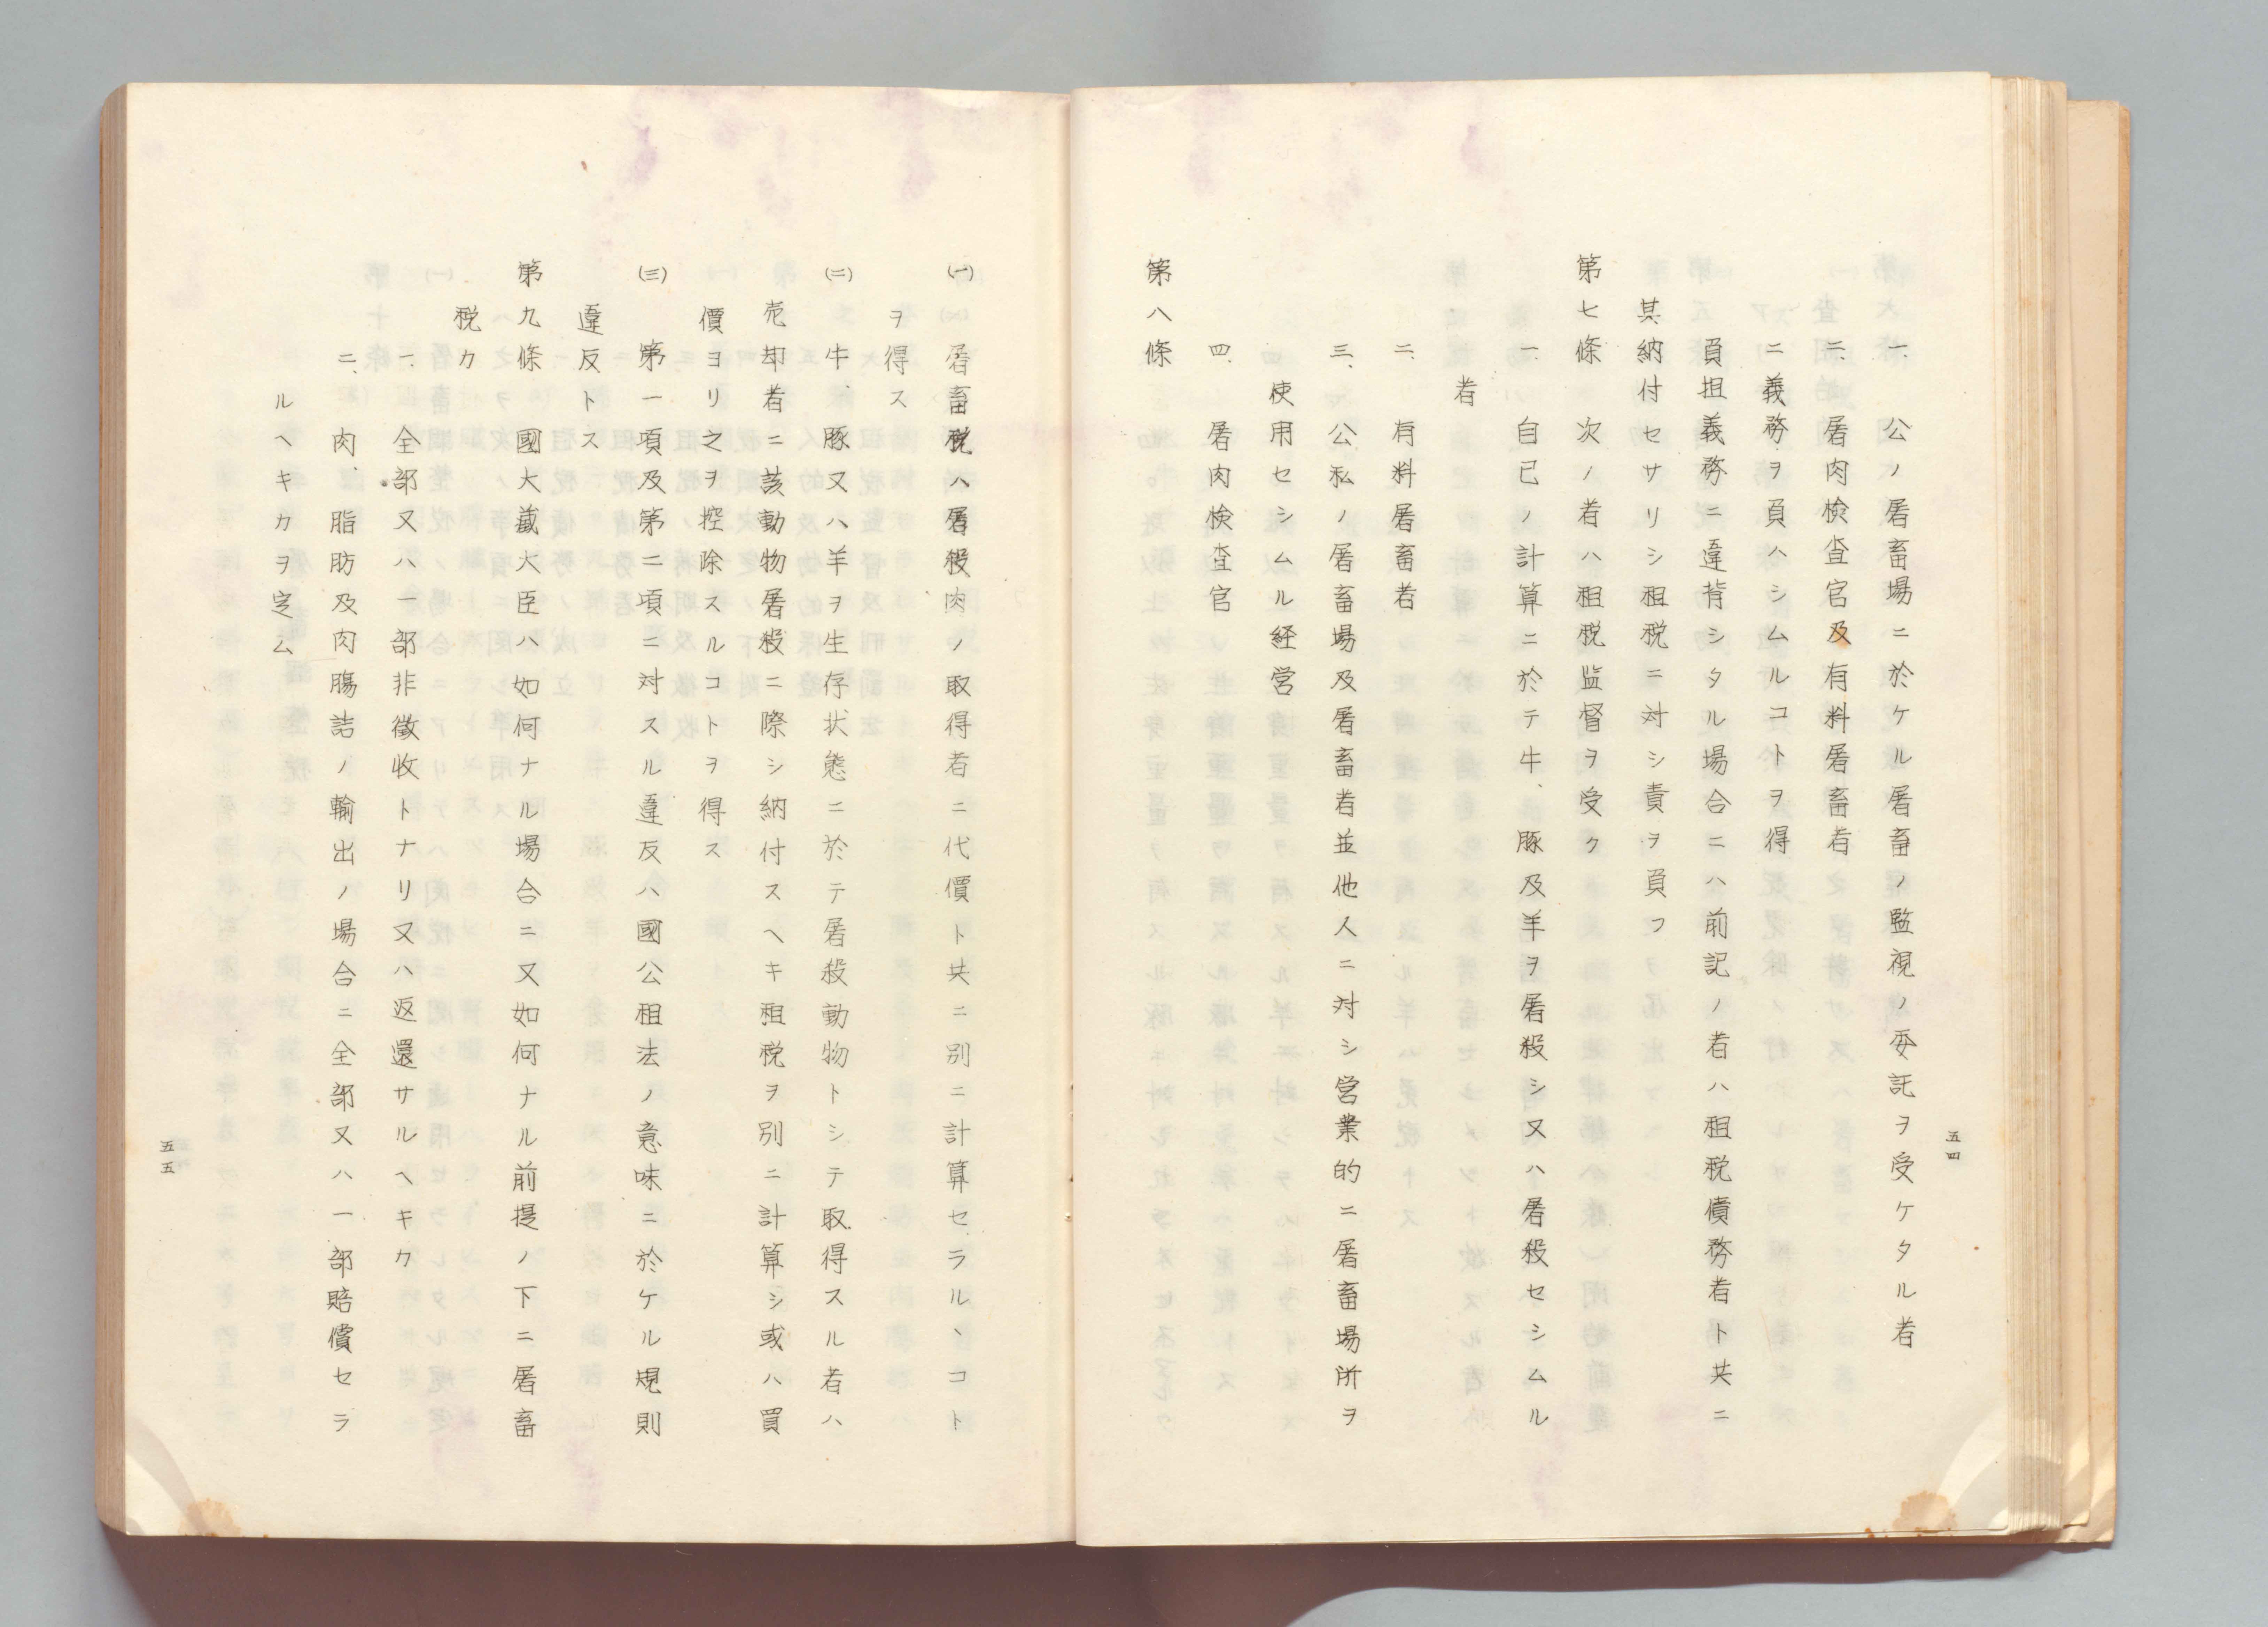 一、公ノ屠畜場ニ於ケル屠畜ノ監視ノ委託ヲ受ケタル者
二、屠肉検査官及有料屠畜者
ニ義務ヲ負ハシムルコトヲ得
負担義務ニ違背シタル場合ニハ前記ノ者ハ租税債務者ト共ニ
其納付セサリシ租税ニ対シ責ヲ負フ
第七條 次ノ者ハ租税監督ヲ受ク
一、自己ノ計算ニ於テ牛、豚及羊ヲ屠殺シ又ハ屠殺セシムル
者
二、有料屠畜者
三、公私ノ屠畜場及屠畜者並他人ニ対シ営業的ニ屠畜場所ヲ
使用セシムル経営
四、屠肉検査官
第八條
五四
(一) 屠畜税ハ屠殺肉ノ取得者ニ代價ト共ニ別ニ計算セラルヽコト
ヲ得ス
(二) 牛、豚又ハ羊ヲ生存状態ニ於テ屠殺動物トシテ取得スル者ハ
売却者ニ該動物屠殺ニ際シ納付スヘキ租税ヲ別ニ計算シ或ハ買
價ヨリ之ヲ控除スルコトヲ得ス
(三) 第一項及第二項ニ対スル違反ハ國公租法ノ意味ニ於ケル規則
違反トス
第九條 國大蔵大臣ハ如何ナル場合ニ又如何ナル前提ノ下ニ屠畜
税カ
一、全部又ハ一部非徴收トナリ又ハ返還サルヘキカ
二、肉、脂肪及肉腸詰ノ輸出ノ場合ニ全部又ハ一部賠償セラ
ルヘキカヲ定ム
五五